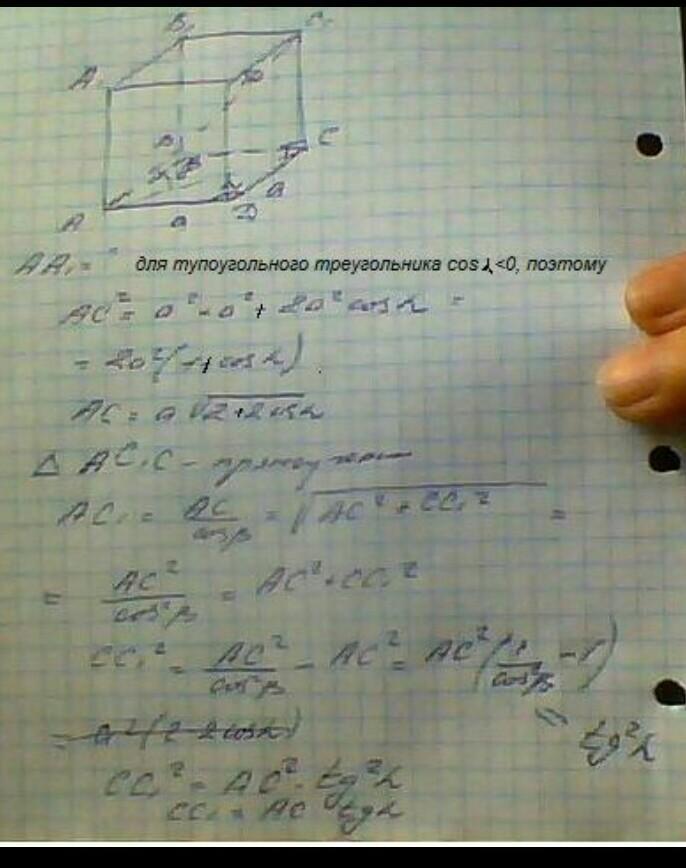 B₁ C₁
A₁ D₁
B C
α β
A a D a
AA₁ =
для тупоугольного треугольника cos α<0, поэтому
AC² = a² + a² + 2a² cos α =
= 2a²(1+cos α)
AC = a √2+2cos α
Δ AC₁C -
AC₁ = AC/cos β = √AC² + CC₁² =
= AC²/cos²β = AC² + CC₁²
CC₁² = AC²/cos²β - AC² = AC² (1/cos²β - 1)
= a²(2 2cos α) = tg²α
CC₁² = AC² · tg²α
CC₁ = AC tg α